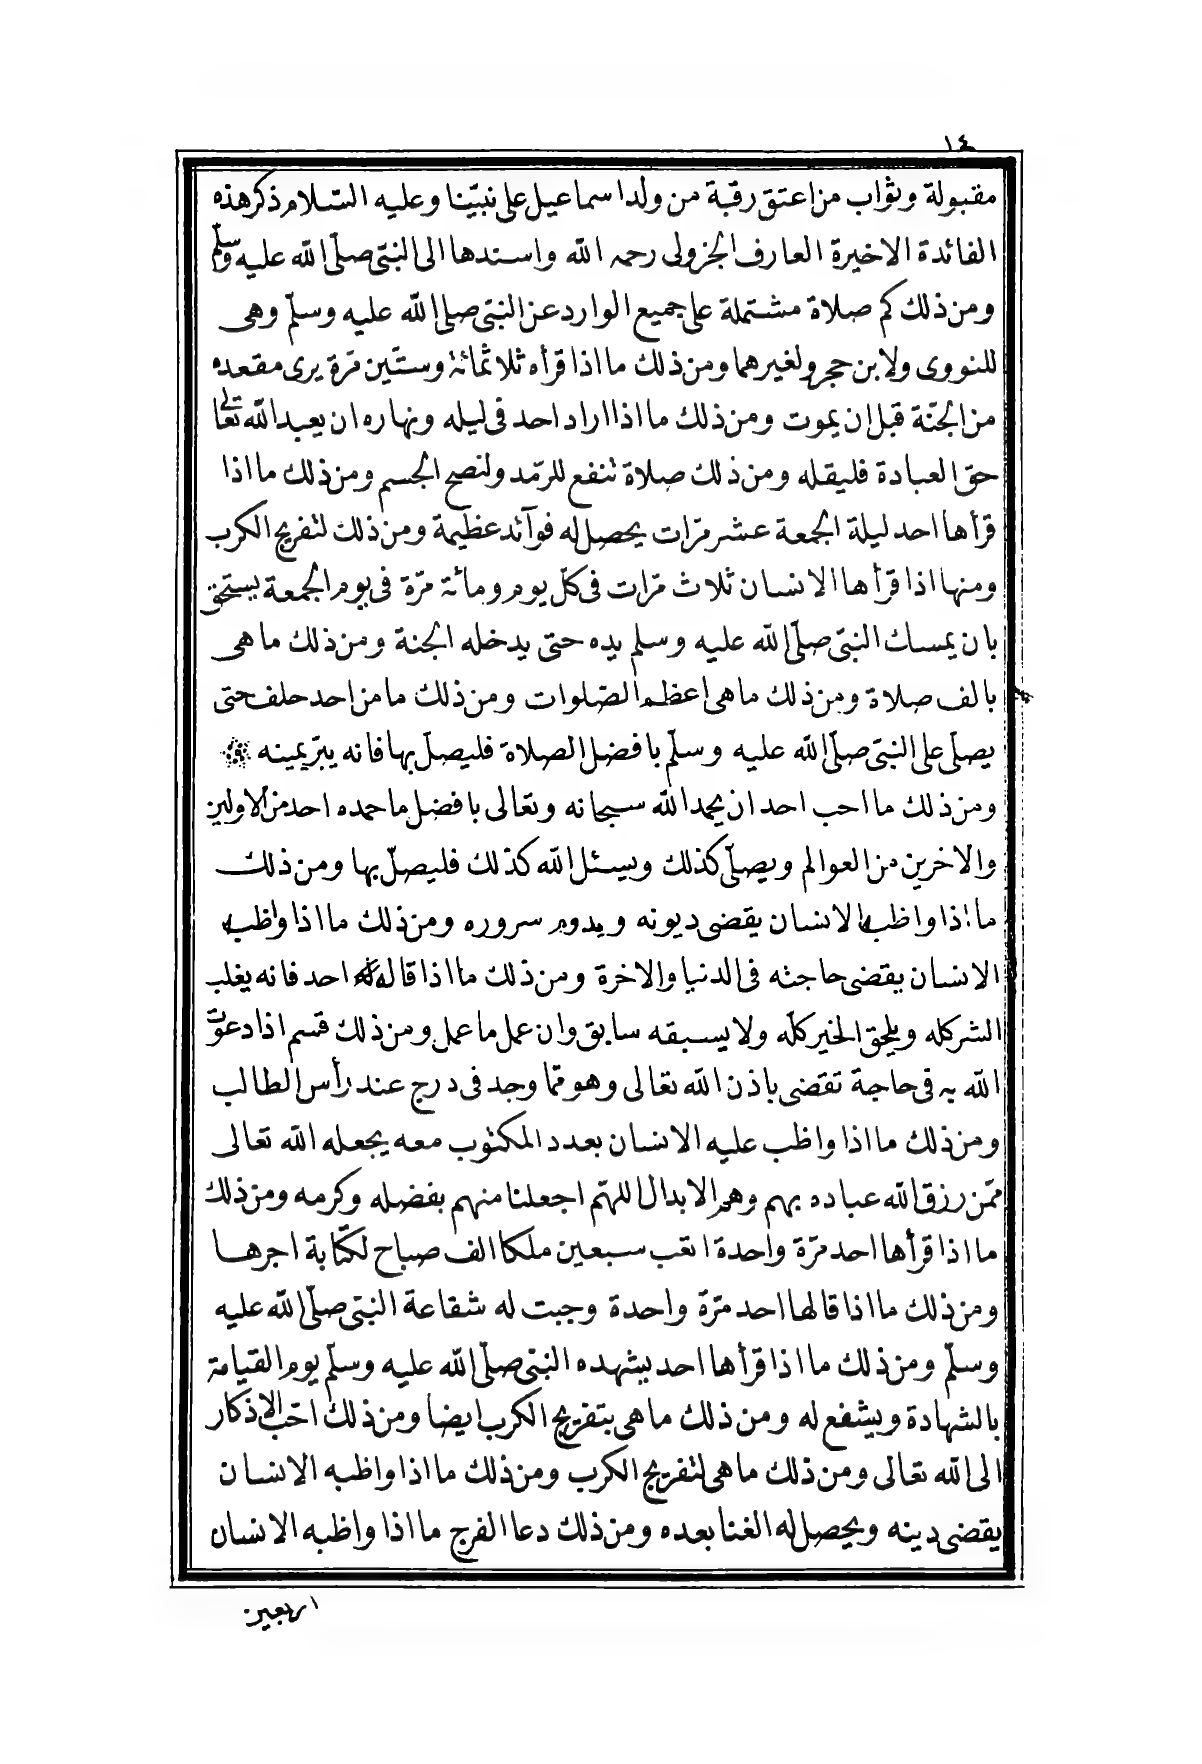 ١٤
مقبولة وثواب من اعتق رقبة من ولد اسماعيل على نبيّنا وعليه السّلام ذكر هذه
الفائدة الاخيرة العارف الجزولى رحمه الله واسندها الى النبىّ صلّى الله عليه وسلّم
ومن ذلك كم صلاة مشتملة على جميع الوارد عن النبىّ صلى الله عليه وسلّم وهى
للنووى ولابن حجر ولغيرهما ومن ذلك ما اذا قرأه ثلاثمائة وستّين مرّة يرى مقعده
من الجنّة قبل ان يموت ومن ذلك ما اذا اراد احد فى ليله ونهاره ان يعبد الله تعالى
حقّ العبادة فليقله ومن ذلك صلاة تنفع للرّمد ولنصح الجسم ومن ذلك ما اذا
قرأها احد ليلة الجمعة عشر مرّات يحصل له فوآئد عظيمة ومن ذلك لتفريج الكرب
ومنها اذا قرأها الانسان ثلاث مرّات فى كلّ يوم ومائة مرّة فى يوم الجمعة يستحق
بان يمسك النبىّ صلّى الله عليه وسلم يده حتى يدخله الجنة ومن ذلك ما هى
بالف صلاة ومن ذلك ما هى اعظم الصّلوات ومن ذلك ما من احد حلف حتى
يصلّى على النبىّ صلّى الله عليه وسلّم بافضل الصلاة فليصلّ بها فانه يبرّ يمينه
ومن ذلك ما احب احد ان يحمد الله سبحانه وتعالى بافضل ما حمده احد من الاولين
والاخرين من العوالم ويصلّى كذلك ويسئل الله كذلك فليصلّ بها ومن ذلك
ما اذا واظب الانسان يقضى ديونه ويدوم سروره ومن ذلك ما اذا واظب
الانسان يقضى حاجته فى الدنيا والاخرة ومن ذلك ما اذا قاله احد فانه يغلب
الشر كله ويلحق الخير كلّه ولا يسبقه سابق وان عمل ما عمل ومن ذلك قسم اذا دعوت
الله به فى حاجة تقضى باذن الله تعالى وهو ممّا وجد فى درج عند رأس الطالب
ومن ذلك ما اذا واظب عليه الانسان بعدد المكتوب معه يجعله الله تعالى
ممّن رزق الله عباده بهم وهم الابدال اللهمّ اجعلنا منهم بفضله وكرمه ومن ذلك
ما اذا قرأها احد مرّة واحدة اتعب سبعين ملكا الف صباح لكتّابة اجرها
ومن ذلك ما اذا قالها احد مرّة واحدة وجبت له شفاعة النبىّ صلّى الله عليه
وسلّم ومن ذلك ما اذا قرأها احد يشهده النبىّ صلّى الله عليه وسلّم يوم القيامة
بالشهادة ويشفع له ومن ذلك ما هى بتفريج الكرب ايضا ومن ذلك احّب الاذكار
الى الله تعالى ومن ذلك ما هى لتفريج الكرب ومن ذلك ما اذا واظبه الانسان
يقضى دينه ويحصل له الغنا بعده ومن ذلك دعا الفرج ما اذا واظبه الانسان
اربعين